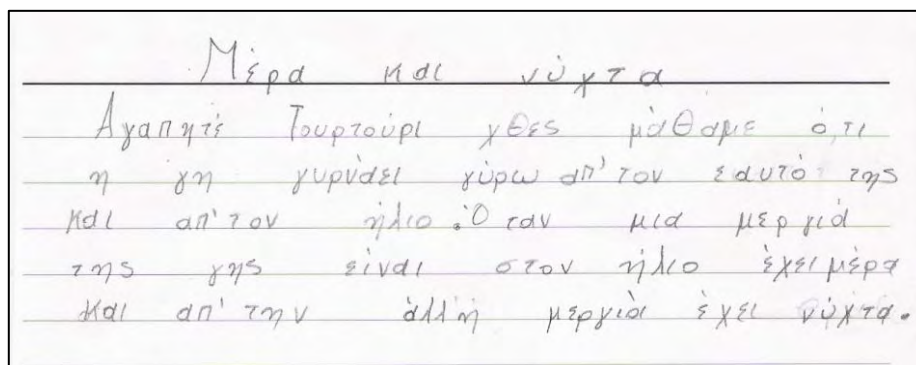 Μέρα και νύχτα
Αγαπητέ Τουρτούρι χθες μάθαμε ό,τι
η γη γυρνάει γύρω απ' τον εαυτό της
και απ' τον ήλιο. Όταν μια μεργιά
της γης είναι στον ήλιο έχει μέρα
και απ' την άλλή μεργιά έχει νύχτα.